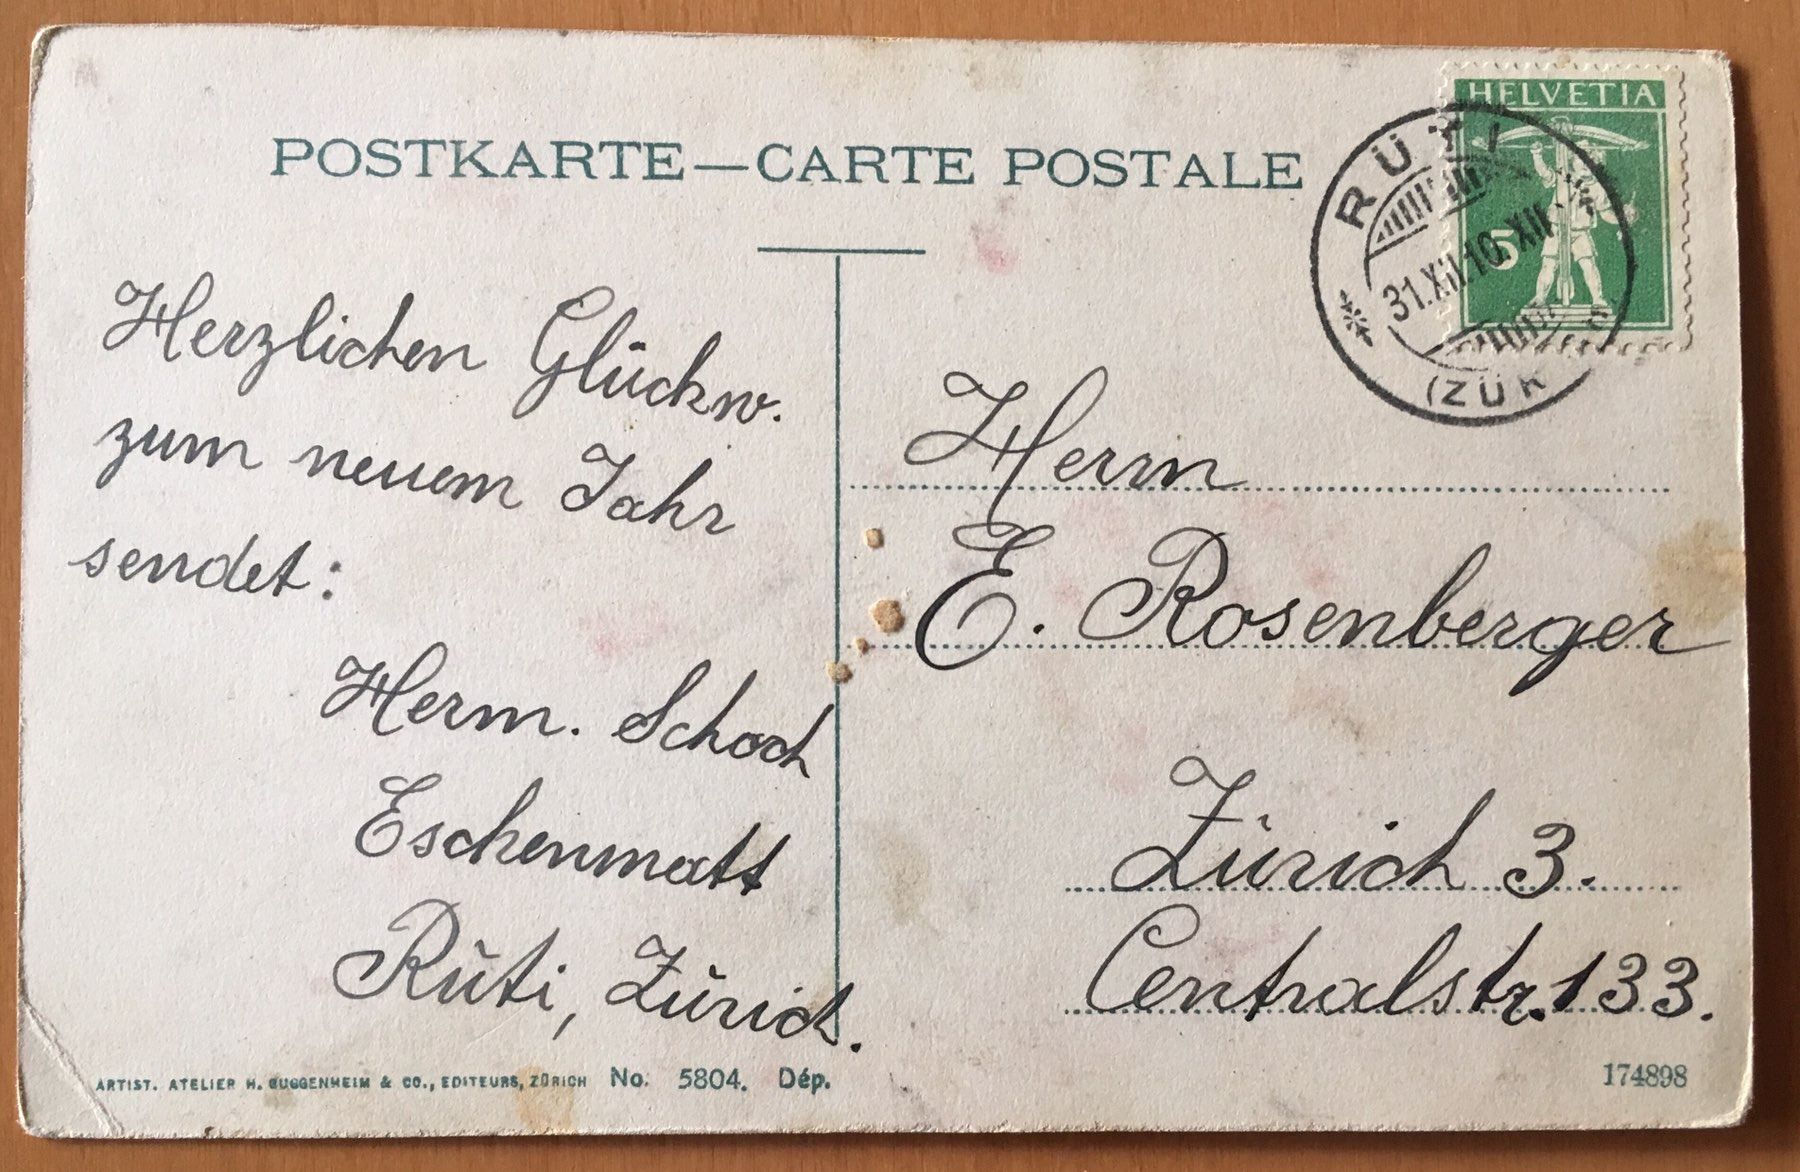 POSTKARTE — CARTE POSTALE
HELVETIA
5
RÜTI
31.XII.10. XII
(ZÜR
Herzlichen Glückw.
zum neuem Jahr
sendet:
Herm. Schoch
Eschenmatt
Rüti, Zürich.
Herrn
E. Rosenberger
Zürich 3.
Centralstr. 133.
ARTIST. ATELIER H. GUGGENHEIM & CO., EDITEURS, ZÜRICH No. 5804. Dép.
174898